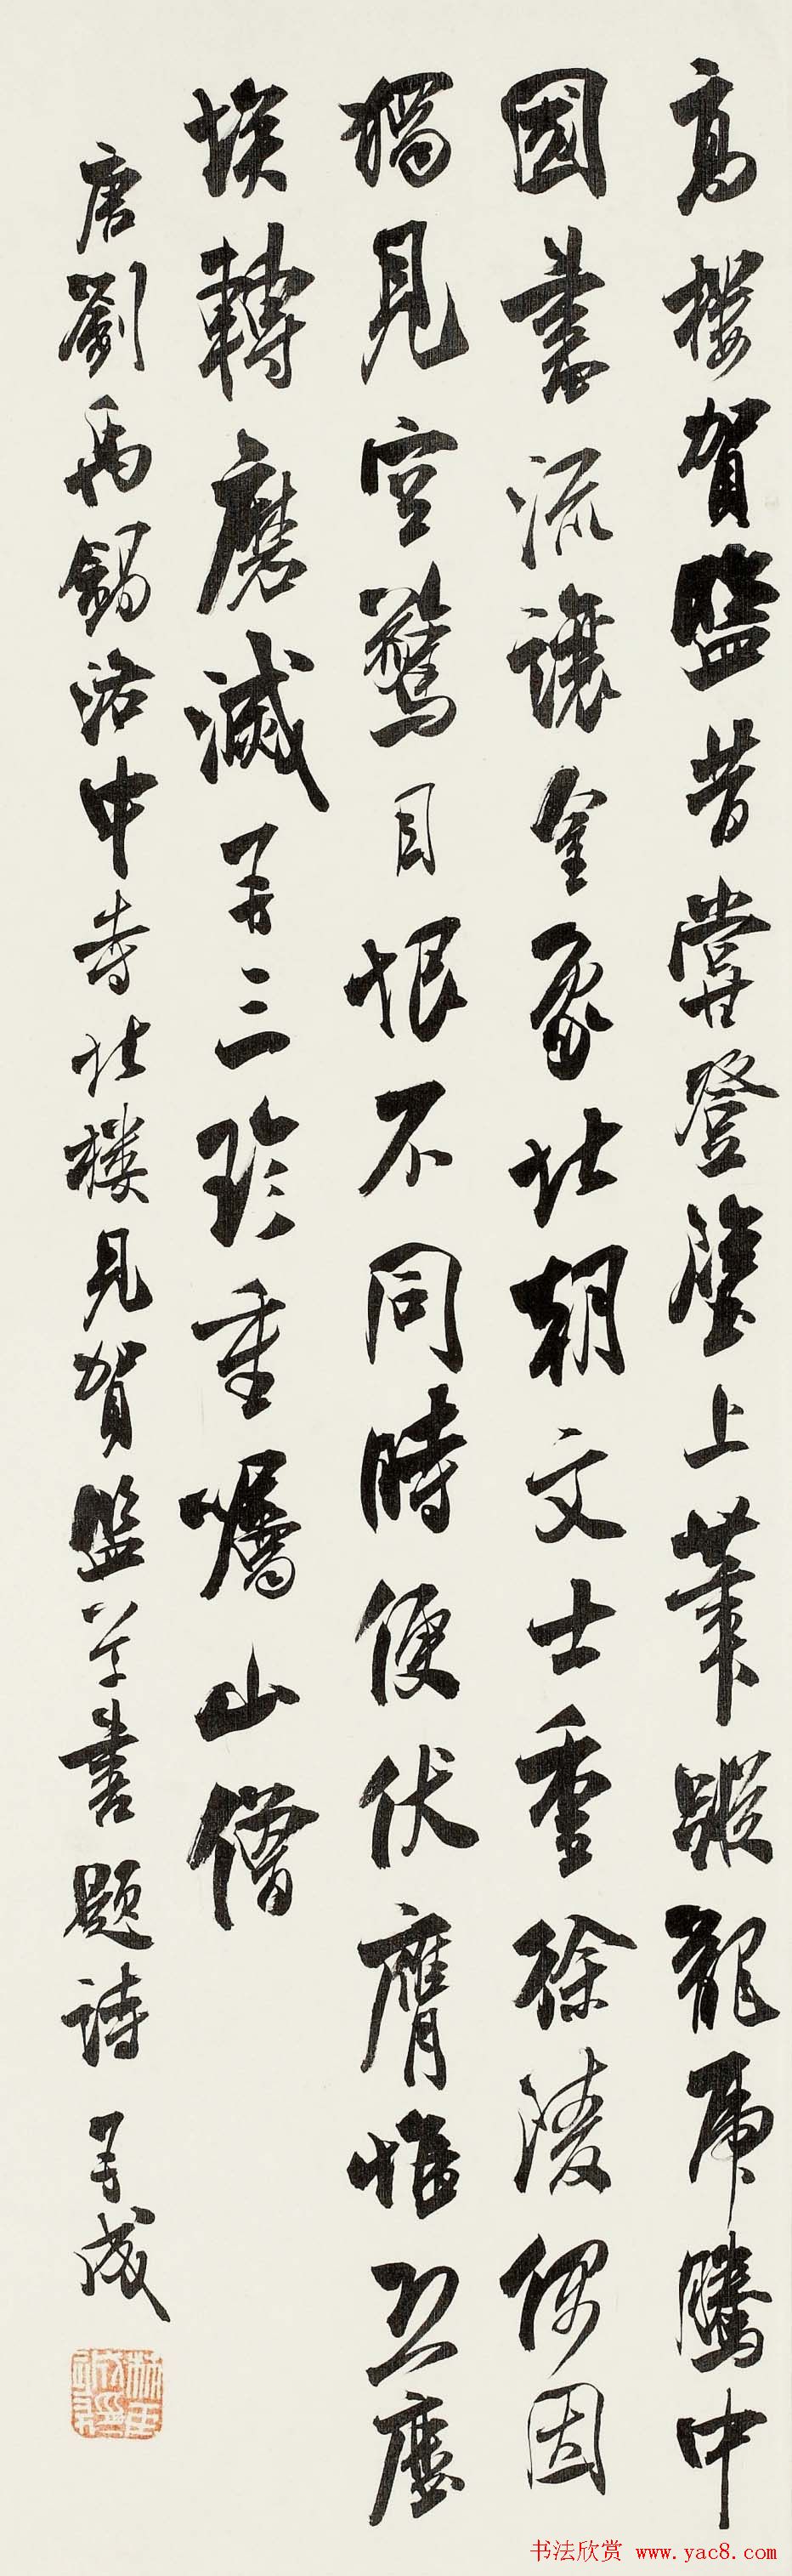 高樓賀監昔甞登壁上筆蹤龍虎騰中
國書流讓皇象北朝文士重徐陵偶因
獨見空驚目恨不同時便伏膺惟恐塵
埃轉磨滅再三珍重囑山僧
唐劉禹錫洛中寺北樓見賀監草書題詩
书法欣赏 www.yac8.com